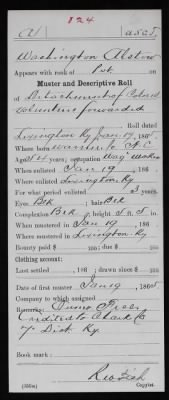 824
A | U.S.C.T.
Washington Alston
Appears with rank of Pvt. on
Muster and Descriptive Roll
of Detachment of Colored
volunteers forwarded
Roll dated
Lexington Ky Jan 19, 1865
Where born Warren Co N.C.
Age y'rs; occupation Wag Maker
When enlisted Jan 19, 186
Where enlisted Lexington Ky
For what period enlisted 3 years.
Eyes Blk; hair Blk
Complexion Blk; height 5 ft. 5 in.
When mustered in Jan 19, 186
Where mustered in Lexington Ky
Bounty paid $ 100; due $ 100
Clothing account:
Last settled , 186 ; drawn since $ 100
Date of first muster Jan 19, 1865
Company to which assigned
Remarks: Free
Credited to Clark Co
7 Dist Ky
Book mark:
(356m) Copyist.